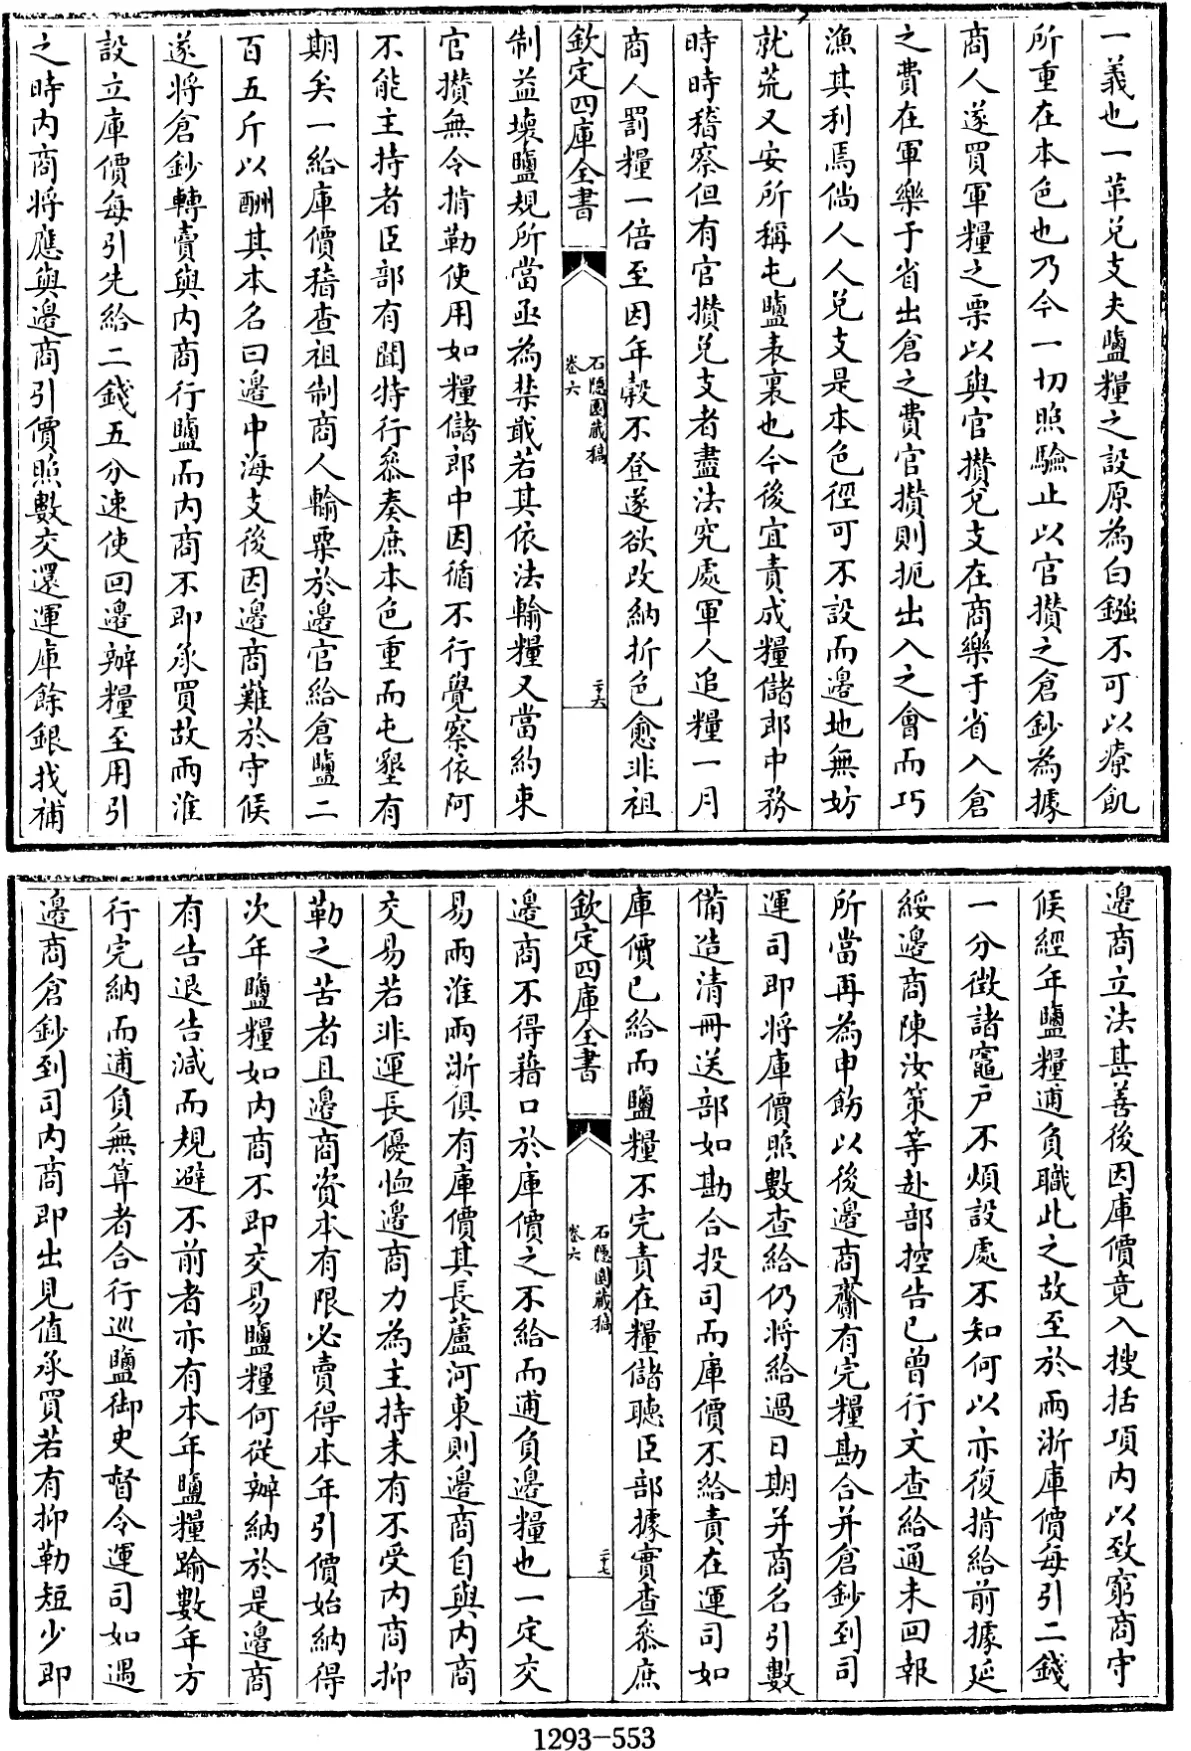 一義也一革兑支夫鹽糧之設原為白鏹不可以療飢
所重在本色也乃今一切照驗止以官攢之倉鈔為據
商人遂買軍糧之票以與官攢兑支在商樂于省入倉
之費在軍樂于省出倉之費官攢則扼出入之會而巧
漁其利焉倘人人兑支是本色徑可不設而邊地無妨
就荒又安所稱屯鹽表裏也今後宜責成糧儲郎中務
時時稽察但有官攢兑支者盡法究處軍人追糧一月
商人罰糧一倍至因年穀不登遂欲改納折色愈非祖
欽定四庫全書
石隱園藏稿
卷六
二十六
制益壞鹽規所當亟為禁戢若其依法輸糧又當約束
官攢無令掯勒使用如糧儲郎中因循不行覺察依阿
不能主持者臣部有聞特行叅奏庶本色重而屯墾有
期矣一給庫價稽查祖制商人輸粟於邊官給倉鹽二
百五斤以酬其本名曰邊中海支後因邊商難於守候
遂將倉鈔轉賣與内商行鹽而内商不即承買故兩淮
設立庫價每引先給二錢五分速使回邊辦糧至用引
之時内商將應與邊商引價照數交還運庫餘銀找補
邊商立法甚善後因庫價竟入搜括項内以致窮商守
候經年鹽糧逋負職此之故至於兩浙庫價每引二錢
一分徵諸竈戶不煩設處不知何以亦復掯給前據延
綏邊商陳汝策等赴部控告已曾行文查給通未回報
所當再為申飭以後邊商齎有完糧勘合并倉鈔到司
運司即將庫價照數查給仍將給過日期并商名引數
備造清冊送部如勘合投司而庫價不給責在運司如
庫價已給而鹽糧不完責在糧儲聽臣部據實查叅庶
欽定四庫全書
石隱園藏稿
卷六
二十七
邊商不得藉口於庫價之不給而逋負邊糧也一定交
易兩淮兩浙俱有庫價其長蘆河東則邊商自與内商
交易若非運長優恤邊商力為主持未有不受内商抑
勒之苦者且邊商資本有限必賣得本年引價始納得
次年鹽糧如内商不即交易鹽糧何從辦納於是邊商
有告退告減而規避不前者亦有本年鹽糧踰數年方
行完納而逋負無算者合行巡鹽御史督令運司如遇
邊商倉鈔到司内商即出見值承買若有抑勒短少即
1293-553